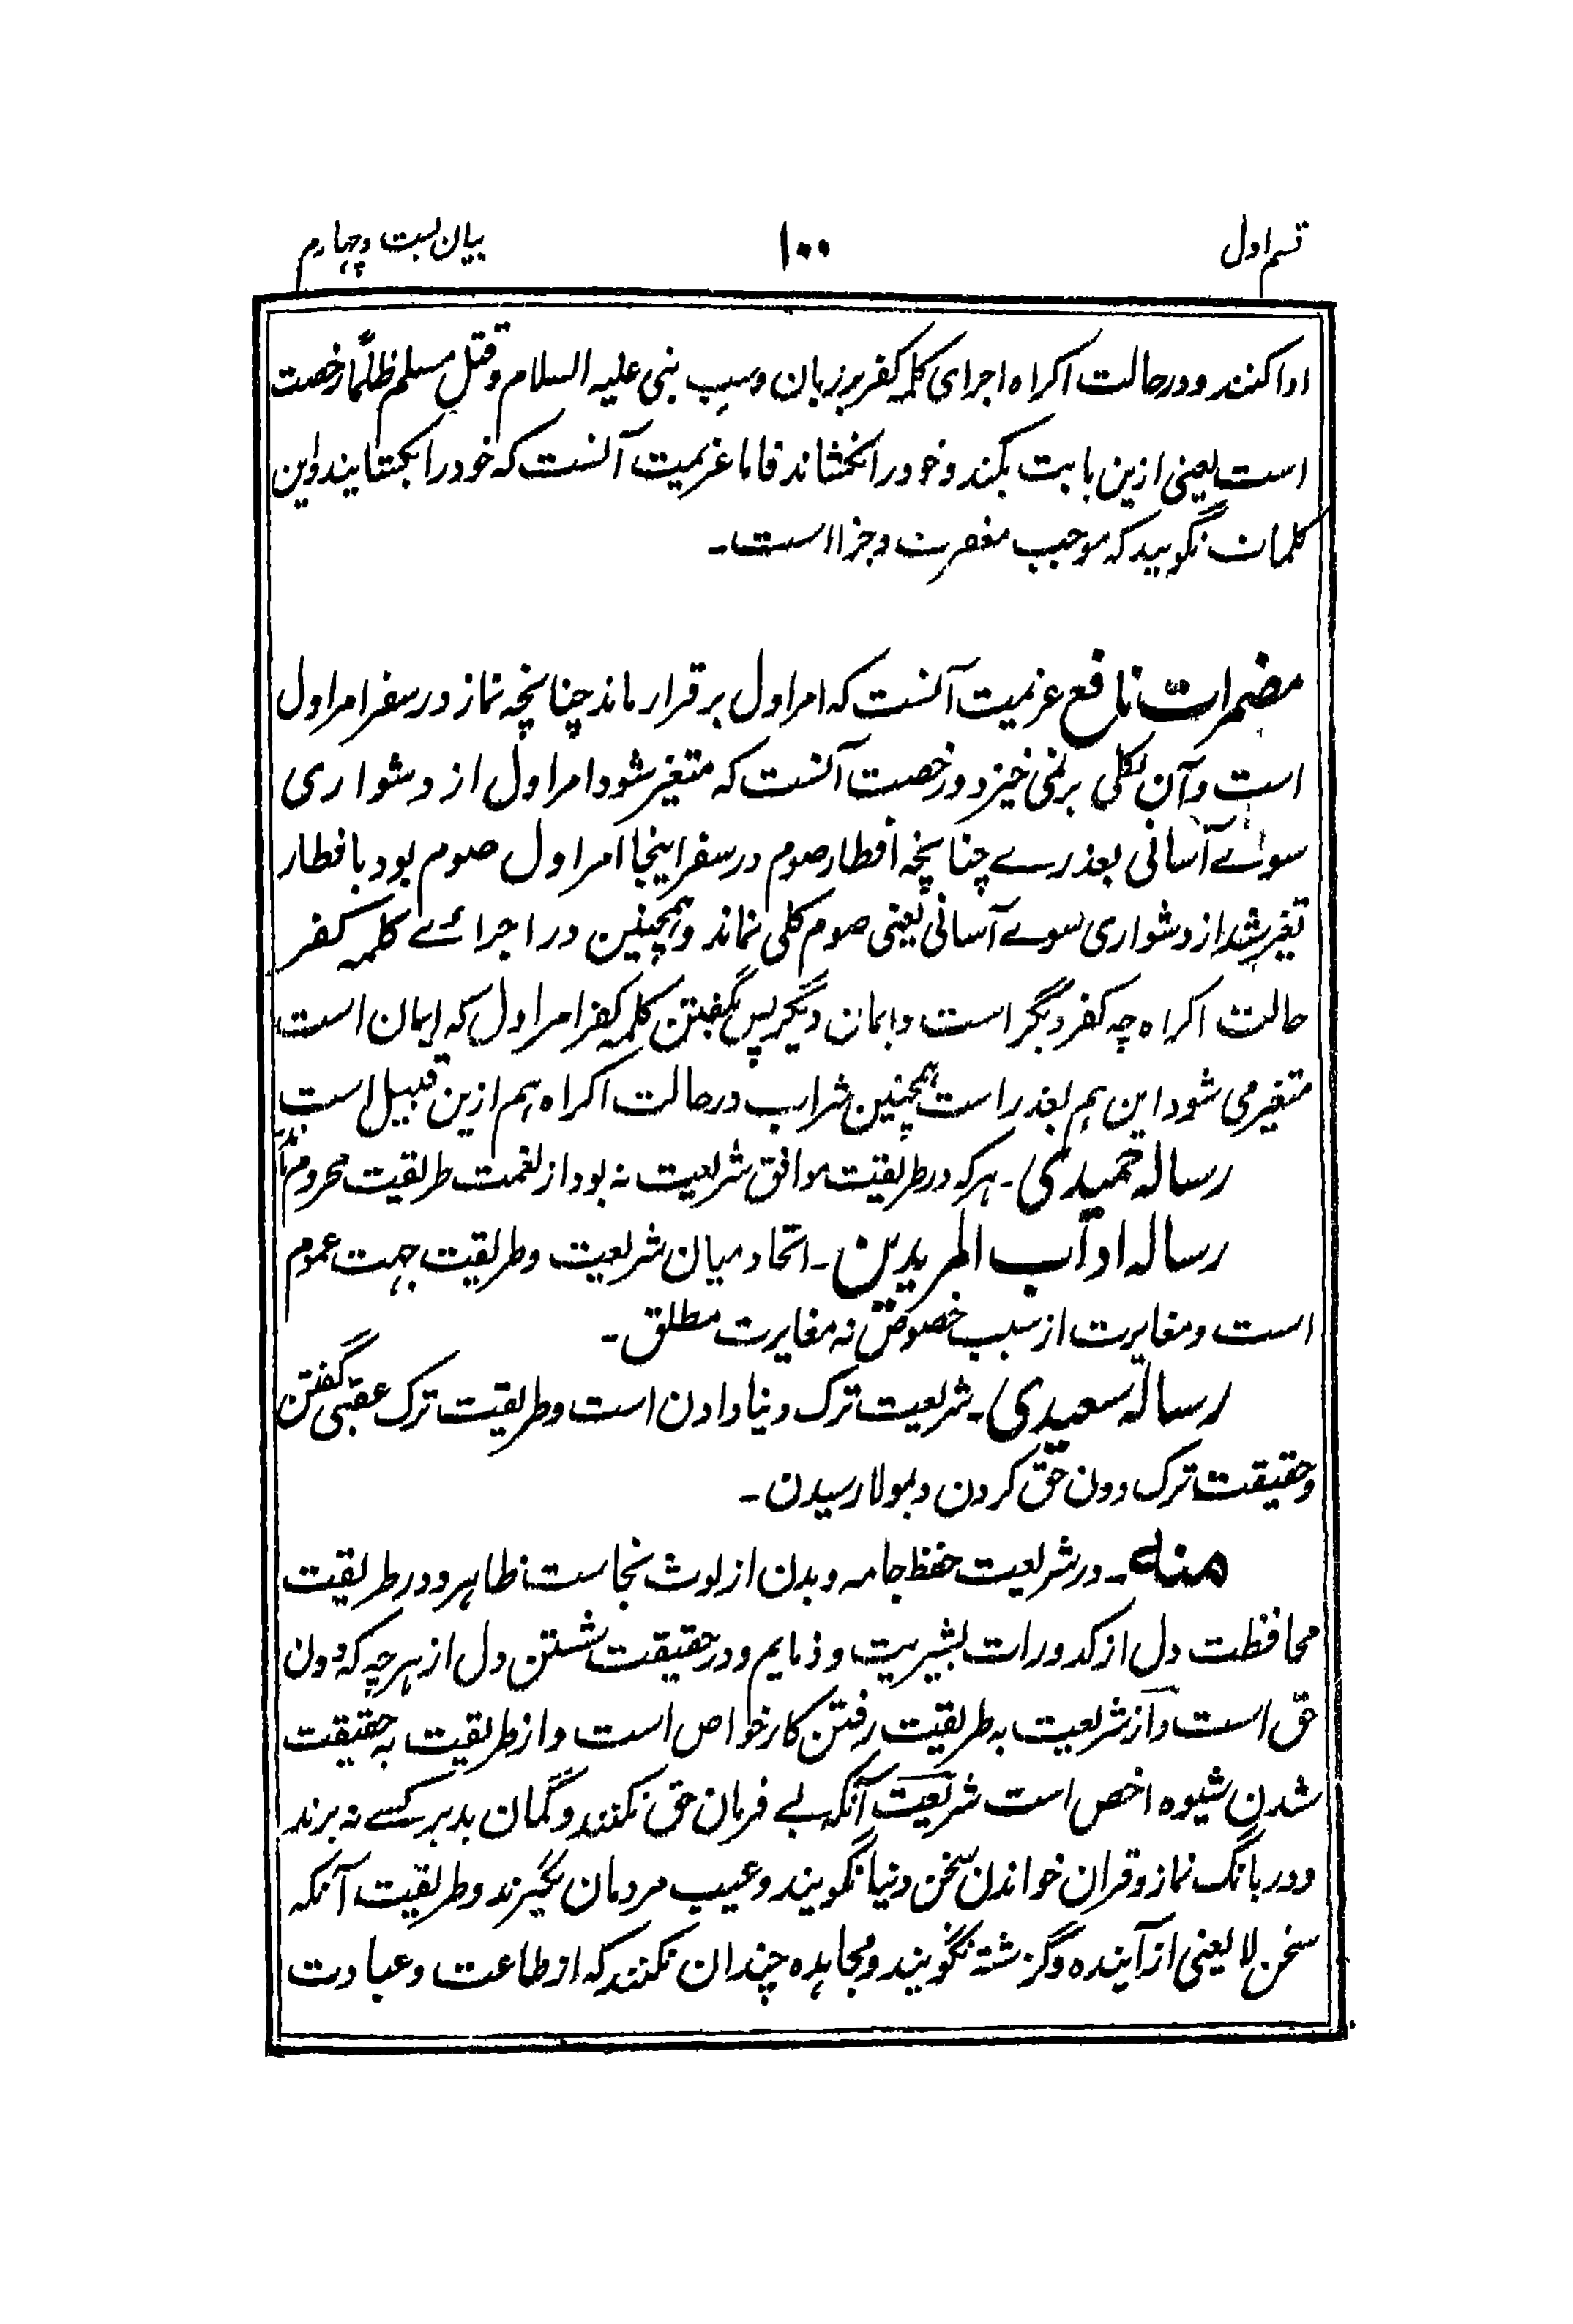 قسم اول
۱۰۰
بیان بست وچہارم
ادا کنند و در حالت اکراہ اجرای کلمہ کفر بر زبان و سب نبی علیہ السلام و قتل مسلم ظلماً رخصت
است یعنی ازین بابت بکند و خود را بخشاند فاما عزیمت آنست کہ خود را بکشانید و این
کلمات نگویید کہ موجب مغفرت و جزا است۔
مضمرات نافع عزیمت آنست کہ امر اول برقرار ماند چنانچہ نماز در سفر امر اول
است و آن بکلی بر نمی خیزد و رخصت آنست کہ متغیر شود امر اول از دشواری
سوے آسانی بعذرے چنانچہ افطار صوم در سفر اینجا امر اول صوم بود بافطار
تغیر شد از دشواری سوے آسانی یعنی صوم کلی نماند و ہمچنین در اجرائے کلمہ کفر
حالت اکراہ چہ کفر دیگر است و ایمان دیگر پس بگفتن کلمہ کفر امر اول کہ ایمان است
متغیر می شود این ہم بعذر است ہمچنین شراب در حالت اکراہ ہم ازین قبیل است
رسالہ حمیدی۔ ہر کہ در طریقت موافق شریعت نہ بود از نعمت طریقت محروم ماند
رسالہ اداب المریدین۔ اتحاد میان شریعت و طریقت جہت عموم
است و مغایرت از سبب خصوص نہ مغایرت مطلق۔
رسالہ سعیدی۔ شریعت ترک دنیا دادن است و طریقت ترک عقبی گفتن
و حقیقت ترک دون حق کردن و بمولا رسیدن۔
منہ۔ در شریعت حفظ جامہ و بدن از لوث نجاست ظاہر و در طریقت
محافظت دل از کدورات بشریت و ذمایم و در حقیقت شستن دل از ہر چہ کہ دون
حق است و از شریعت بہ طریقت رفتن کار خواص است و از طریقت بہ حقیقت
شدن شیوہ اخص است شریعت آنکہ بے فرمان حق نکنند و گمان بد بر کسے نہ برند
و در بانگ نماز و قران خواندن سخن دنیا نگویند و عیب مردمان نگیرند و طریقت آنکہ
سخن لا یعنی از آیندہ و گزشتہ نگویند و مجاہدہ چندان نکنند کہ از طاعت و عبادت